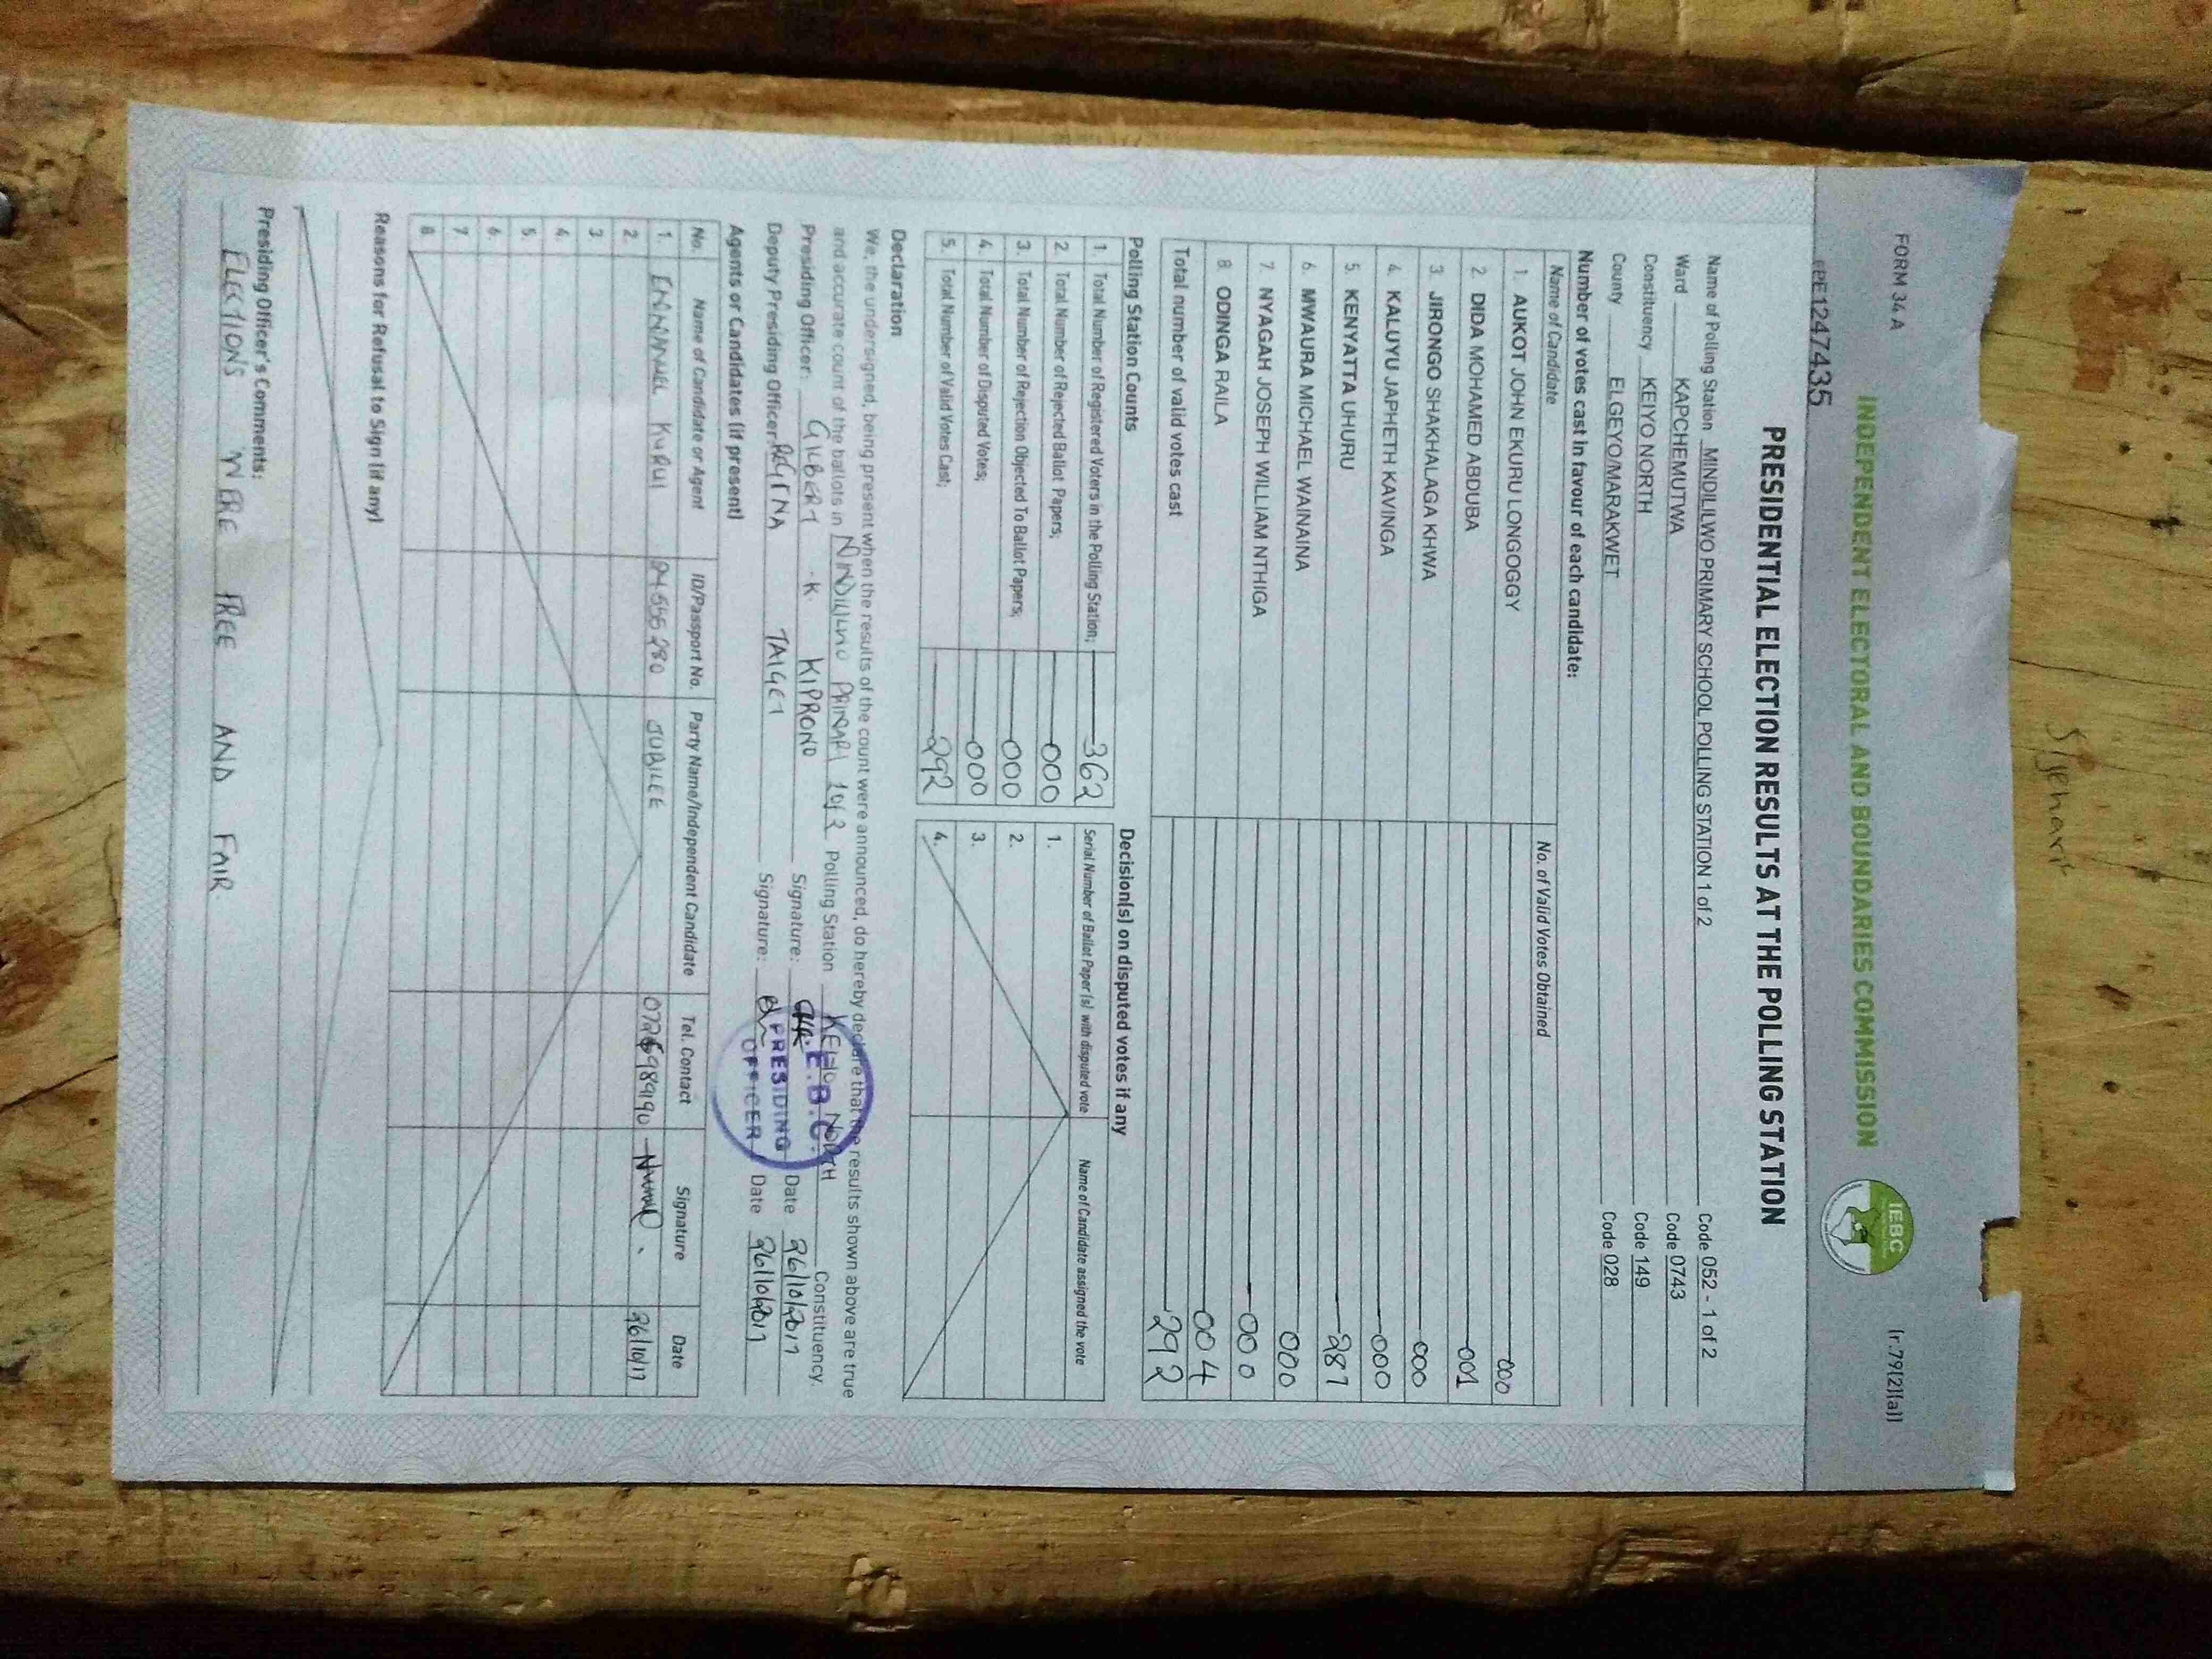 FORM 34 A (r.79(2)(a))
INDEPENDENT ELECTORAL AND BOUNDARIES COMMISSION IEBC
PE1247435
PRESIDENTIAL ELECTION RESULTS AT THE POLLING STATION
Name of Polling Station MINDILILWO PRIMARY SCHOOL POLLING STATION 1 of 2 Code 052 - 1 of 2
Ward KAPCHEMUTWA Code 0743
Constituency KEIYO NORTH Code 149
County ELGEYO/MARAKWET Code 028
Number of votes cast in favour of each candidate:
Name of Candidate No. of Valid Votes Obtained
1. AUKOT JOHN EKURU LONGOGGY 000
2 DIDA MOHAMED ABDUBA 001
3. JIRONGO SHAKHALAGA KHWA 000
4. KALUYU JAPHETH KAVINGA 000
5. KENYATTA UHURU 287
6. MWAURA MICHAEL WAINAINA 000
7. NYAGAH JOSEPH WILLIAM NTHIGA 000
8. ODINGA RAILA 004
Total number of valid votes cast 292
Polling Station Counts
1. Total Number of Registered Voters in the Polling Station; 362
2. Total Number of Rejected Ballot Papers; 000
3. Total Number of Rejection Objected To Ballot Papers; 000
4. Total Number of Disputed Votes; 000
5. Total Number of Valid Votes Cast; 292
Decision(s) on disputed votes if any
Serial Number of Ballot Paper (s) with disputed vote Name of Candidate assigned the vote
1.
2.
3.
4.
Declaration
We, the undersigned, being present when the results of the count were announced, do hereby declare that the results shown above are true
and accurate count of the ballots in MINDILILWO PRIMARY 1 of 2 Polling Station KEIYO NORTH Constituency.
Presiding Officer: GILBERT K. KIPRONO Signature: Date 26/10/2017
Deputy Presiding Officer: REGINA TAIGET Signature: Date 26/10/2017
I.E.B.C.
PRESIDING
OFFICER
Agents or Candidates (if present)
No. Name of Candidate or Agent ID/Passport No. Party Name/Independent Candidate Tel. Contact Signature Date
1. EMMANUEL KURUI 24555280 JUBILEE 26/10/17
2.
3.
4.
5.
6.
7.
8.
Reasons for Refusal to Sign (if any)
Presiding Officer's Comments:
ELECTIONS WERE FREE AND FAIR